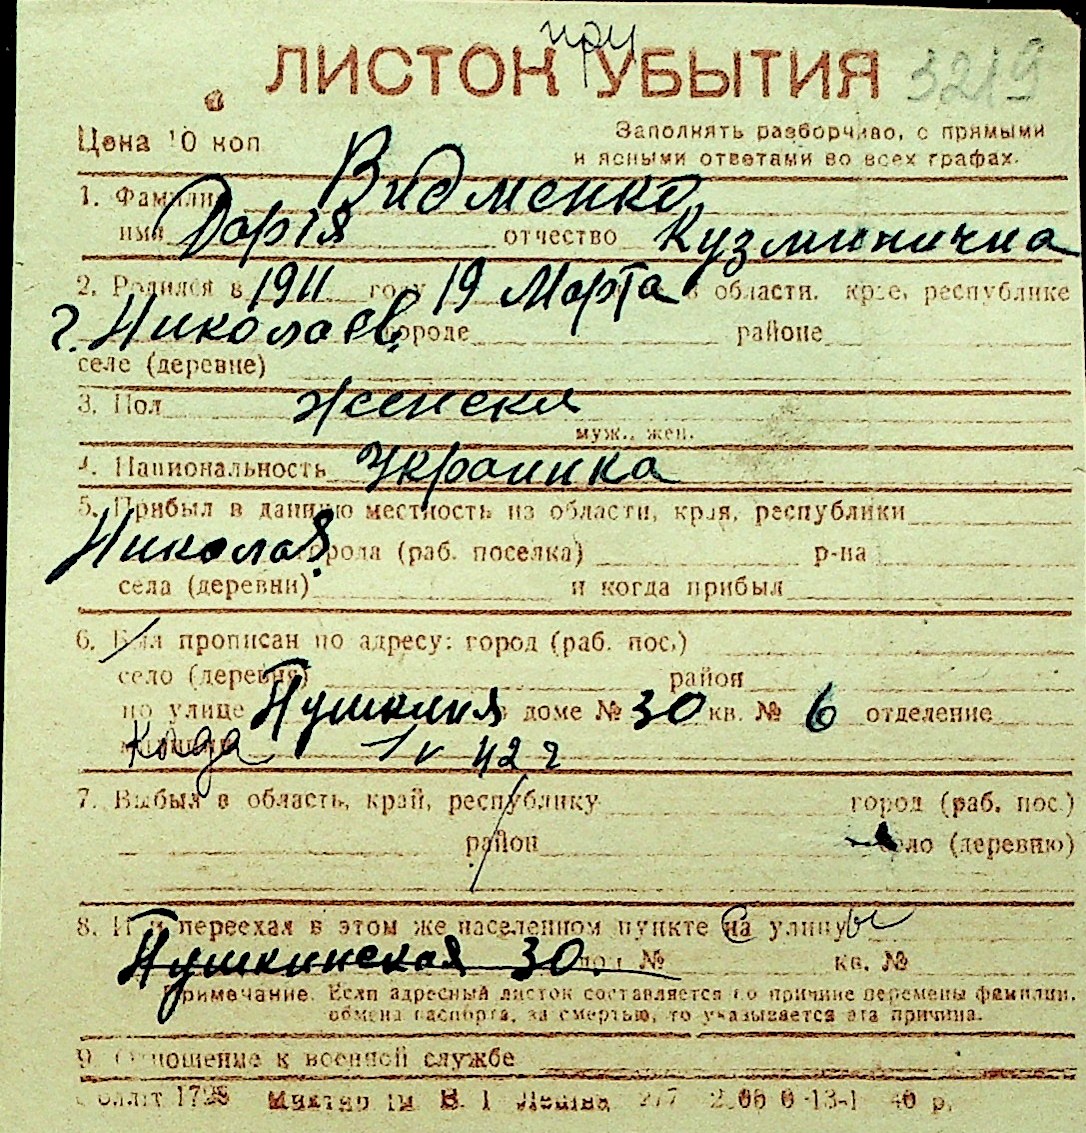 при
ЛИСТОК УБЫТИЯ 3219
Цена 10 коп
Заполнять разборчиво, с прямыми
и ясными ответами во всех графах.
1. Фамилия Видменко
имя Дарія отчество Кузминична
2. Родился в 1911 году 19 Марта в области, крае, республике
г. Николаев. городе районе
селе (деревне)
3. Пол женская
муж., жен.
4. Национальность Украинка
5. Прибыл в данную местность из области, края, республики
Николаев. города (раб. поселка) р-на
села (деревни) и когда прибыл
6. Был прописан по адресу: город (раб. пос.)
село (деревня) район
по улице в доме № 30 кв. № 6 отделение
Когда 42 г
7. Выбыл в область, край, республику город (раб. пос.)
район село (деревню)
8. Или переехал в этом же населенном пункте на улицу ы
Пушкинская 30. дом № кв. №
Примечание. Если адресный листок составляется по причине перемены фамилии,
обмена паспорта, за смертью, то указывается эта причина.
9. Отношение к военной службе
1728 ім В. І Леніна 40 р.